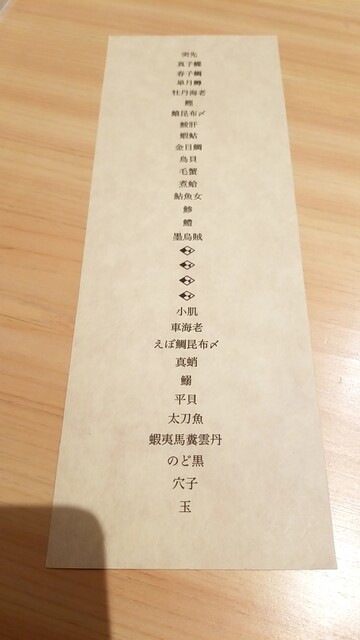 突先
真子鰈
春子鯛
皐月鱒
牡丹海老
鰹
鱚昆布〆
鮟肝
蝦蛄
金目鯛
鳥貝
毛蟹
煮蛤
鮎魚女
鯵
鱧
墨烏賊
小肌
車海老
えぼ鯛昆布〆
真蛸
鰯
平貝
太刀魚
蝦夷馬糞雲丹
のど黒
穴子
玉